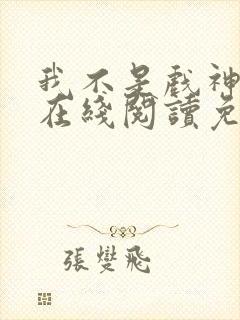 我不是戲神
在綫閱讀免
張燮飛